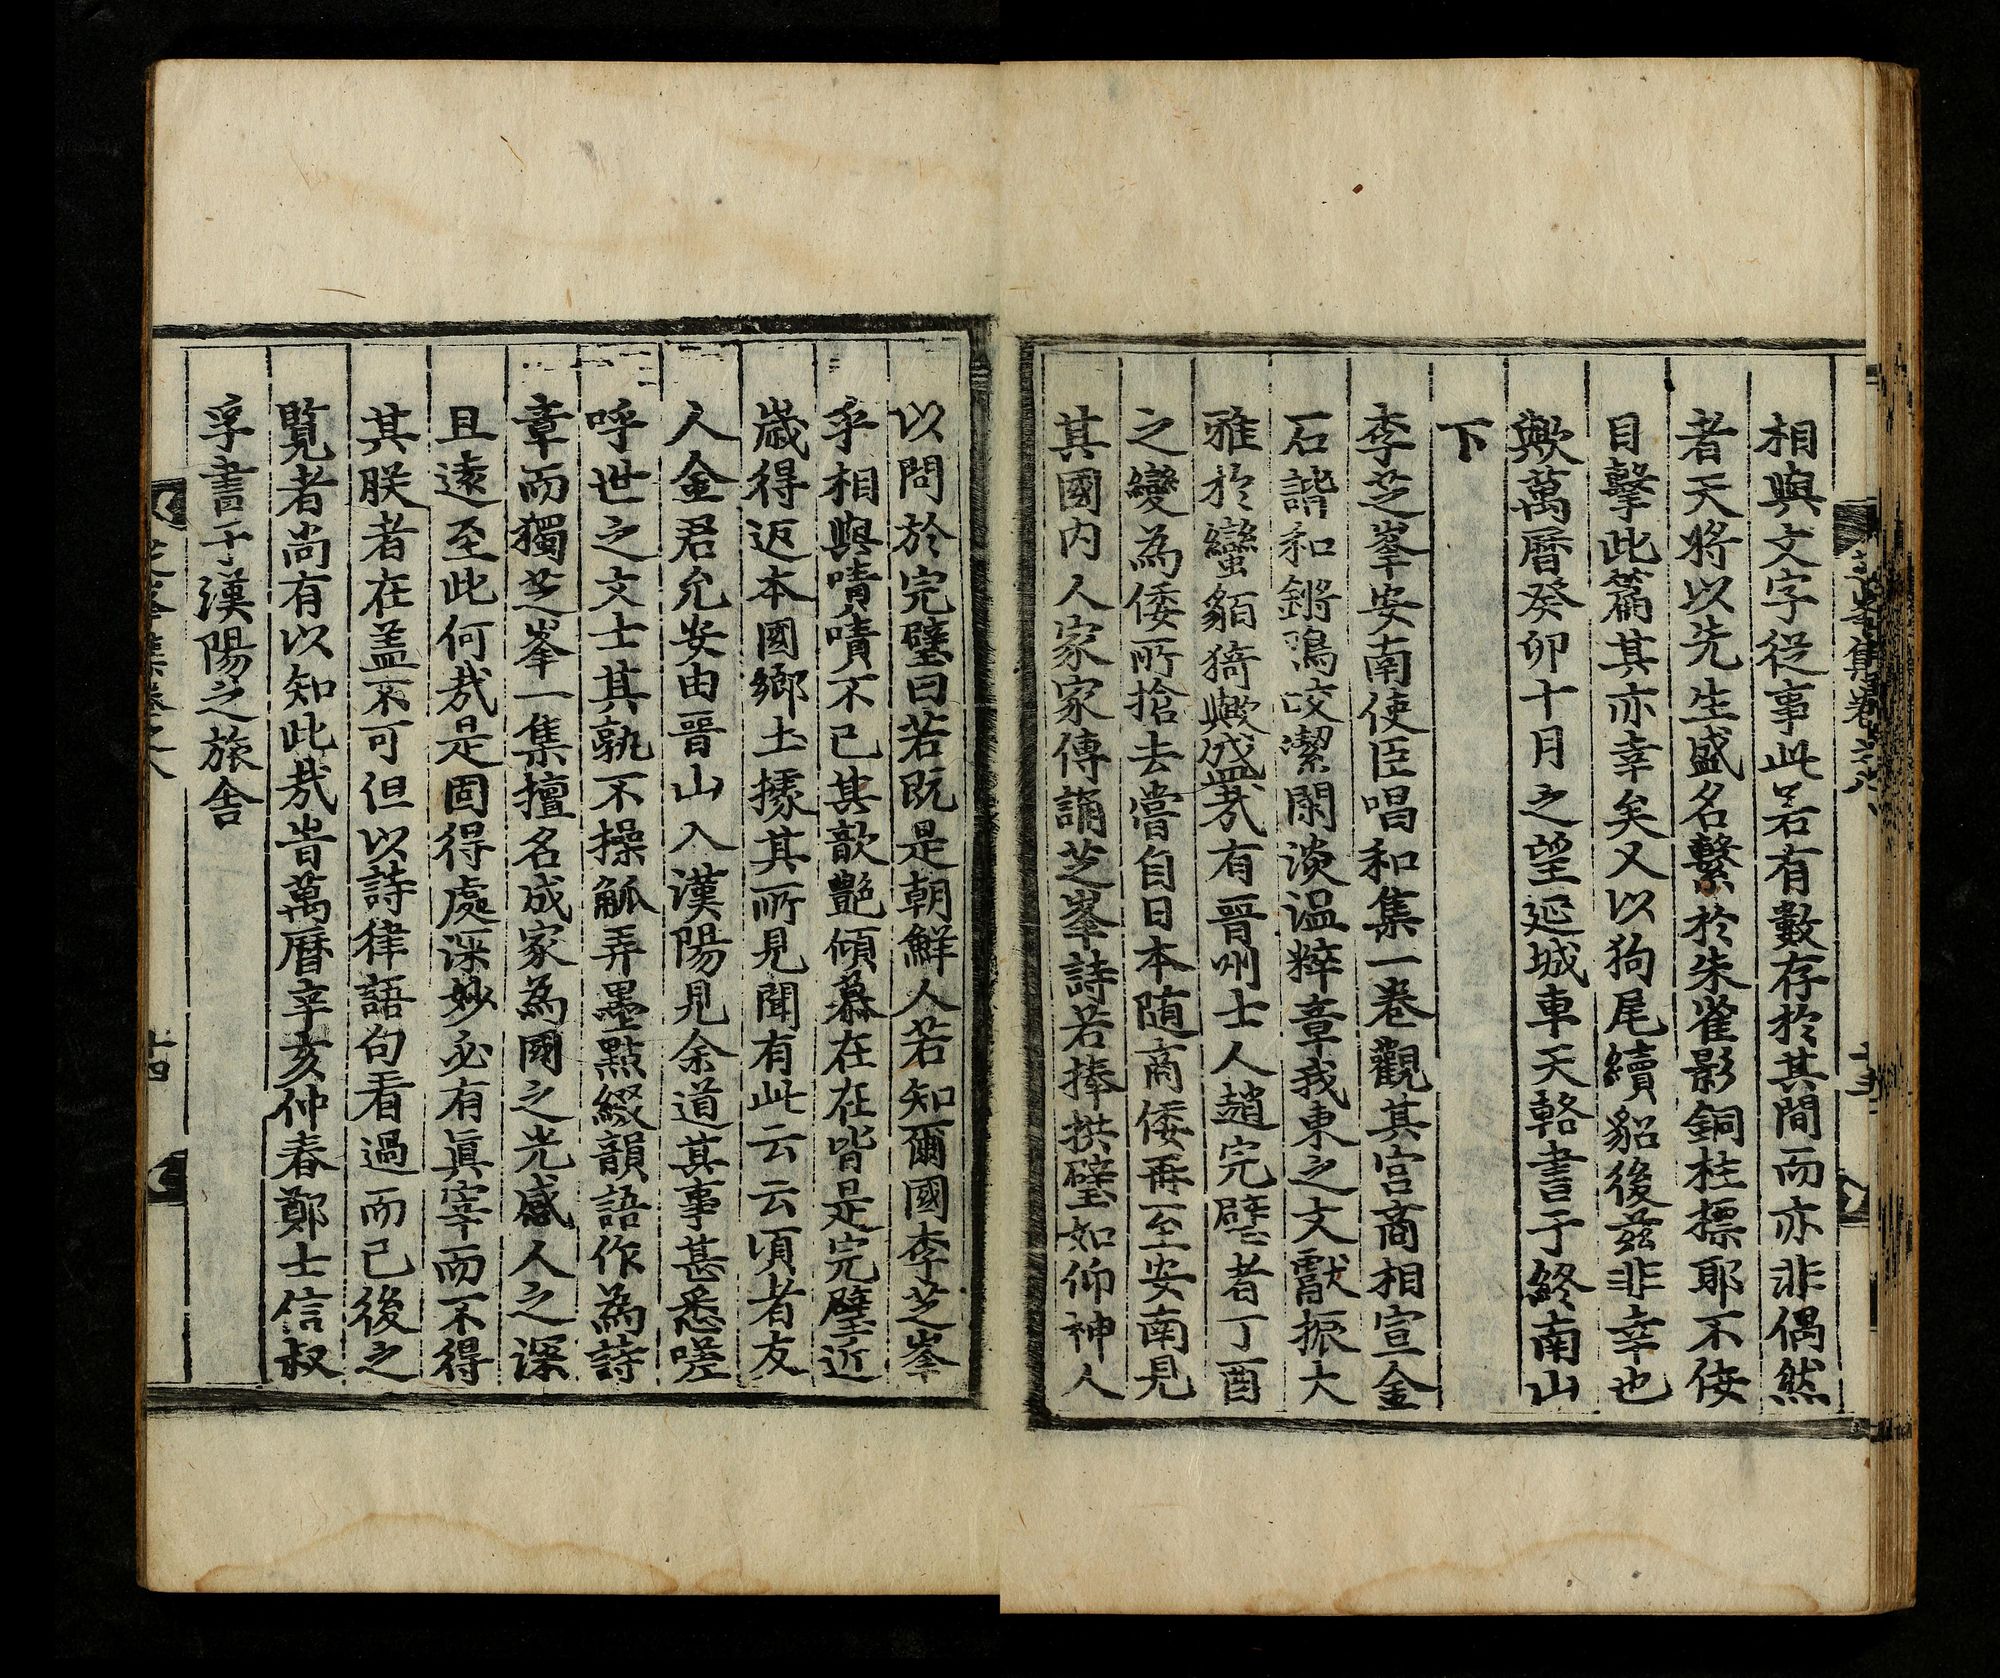 相與文字從事此若有數存於其間而亦非偶然
者天將以先生盛名繫於朱雀影銅柱標耶不佞
目擊此篇其亦幸矣又以狗尾續貂後玆非幸也
歟萬曆癸卯十月之望延城車天輅書于終南山
下
李芝峯安南使臣唱和集一卷觀其宮商相宣金
石諧和鏘鳴咬潔閑淡温粹章我東之文獻振大
雅於蠻貊猗歟盛哉有晋州士人趙完璧者丁酉
之變為倭所搶去嘗自日本随商倭再至安南見
其國内人家家傳誦芝峯詩若捧拱璧如仰神人
以問於完璧曰若既是朝鮮人若知爾國李芝峯
乎相與嘖嘖不已其歆艶傾慕在在皆是完璧近
歲得返本國鄉土據其所見聞有此云云頃者友
人金君允安由晋山入漢陽見余道其事甚悉嗟
呼世之文士其孰不操觚弄墨點綴韻語作為詩
章而獨芝峯一集擅名成家為國之光感人之深
且遠至此何㢤是固得處深妙必有眞宰而不得
其朕者在盖不可但以詩律語句看過而已後之
覧者尚有以知此㢤旹萬曆辛亥仲春鄭士信叔
孚書于漢陽之旅舍
芝峯集卷之八
十四